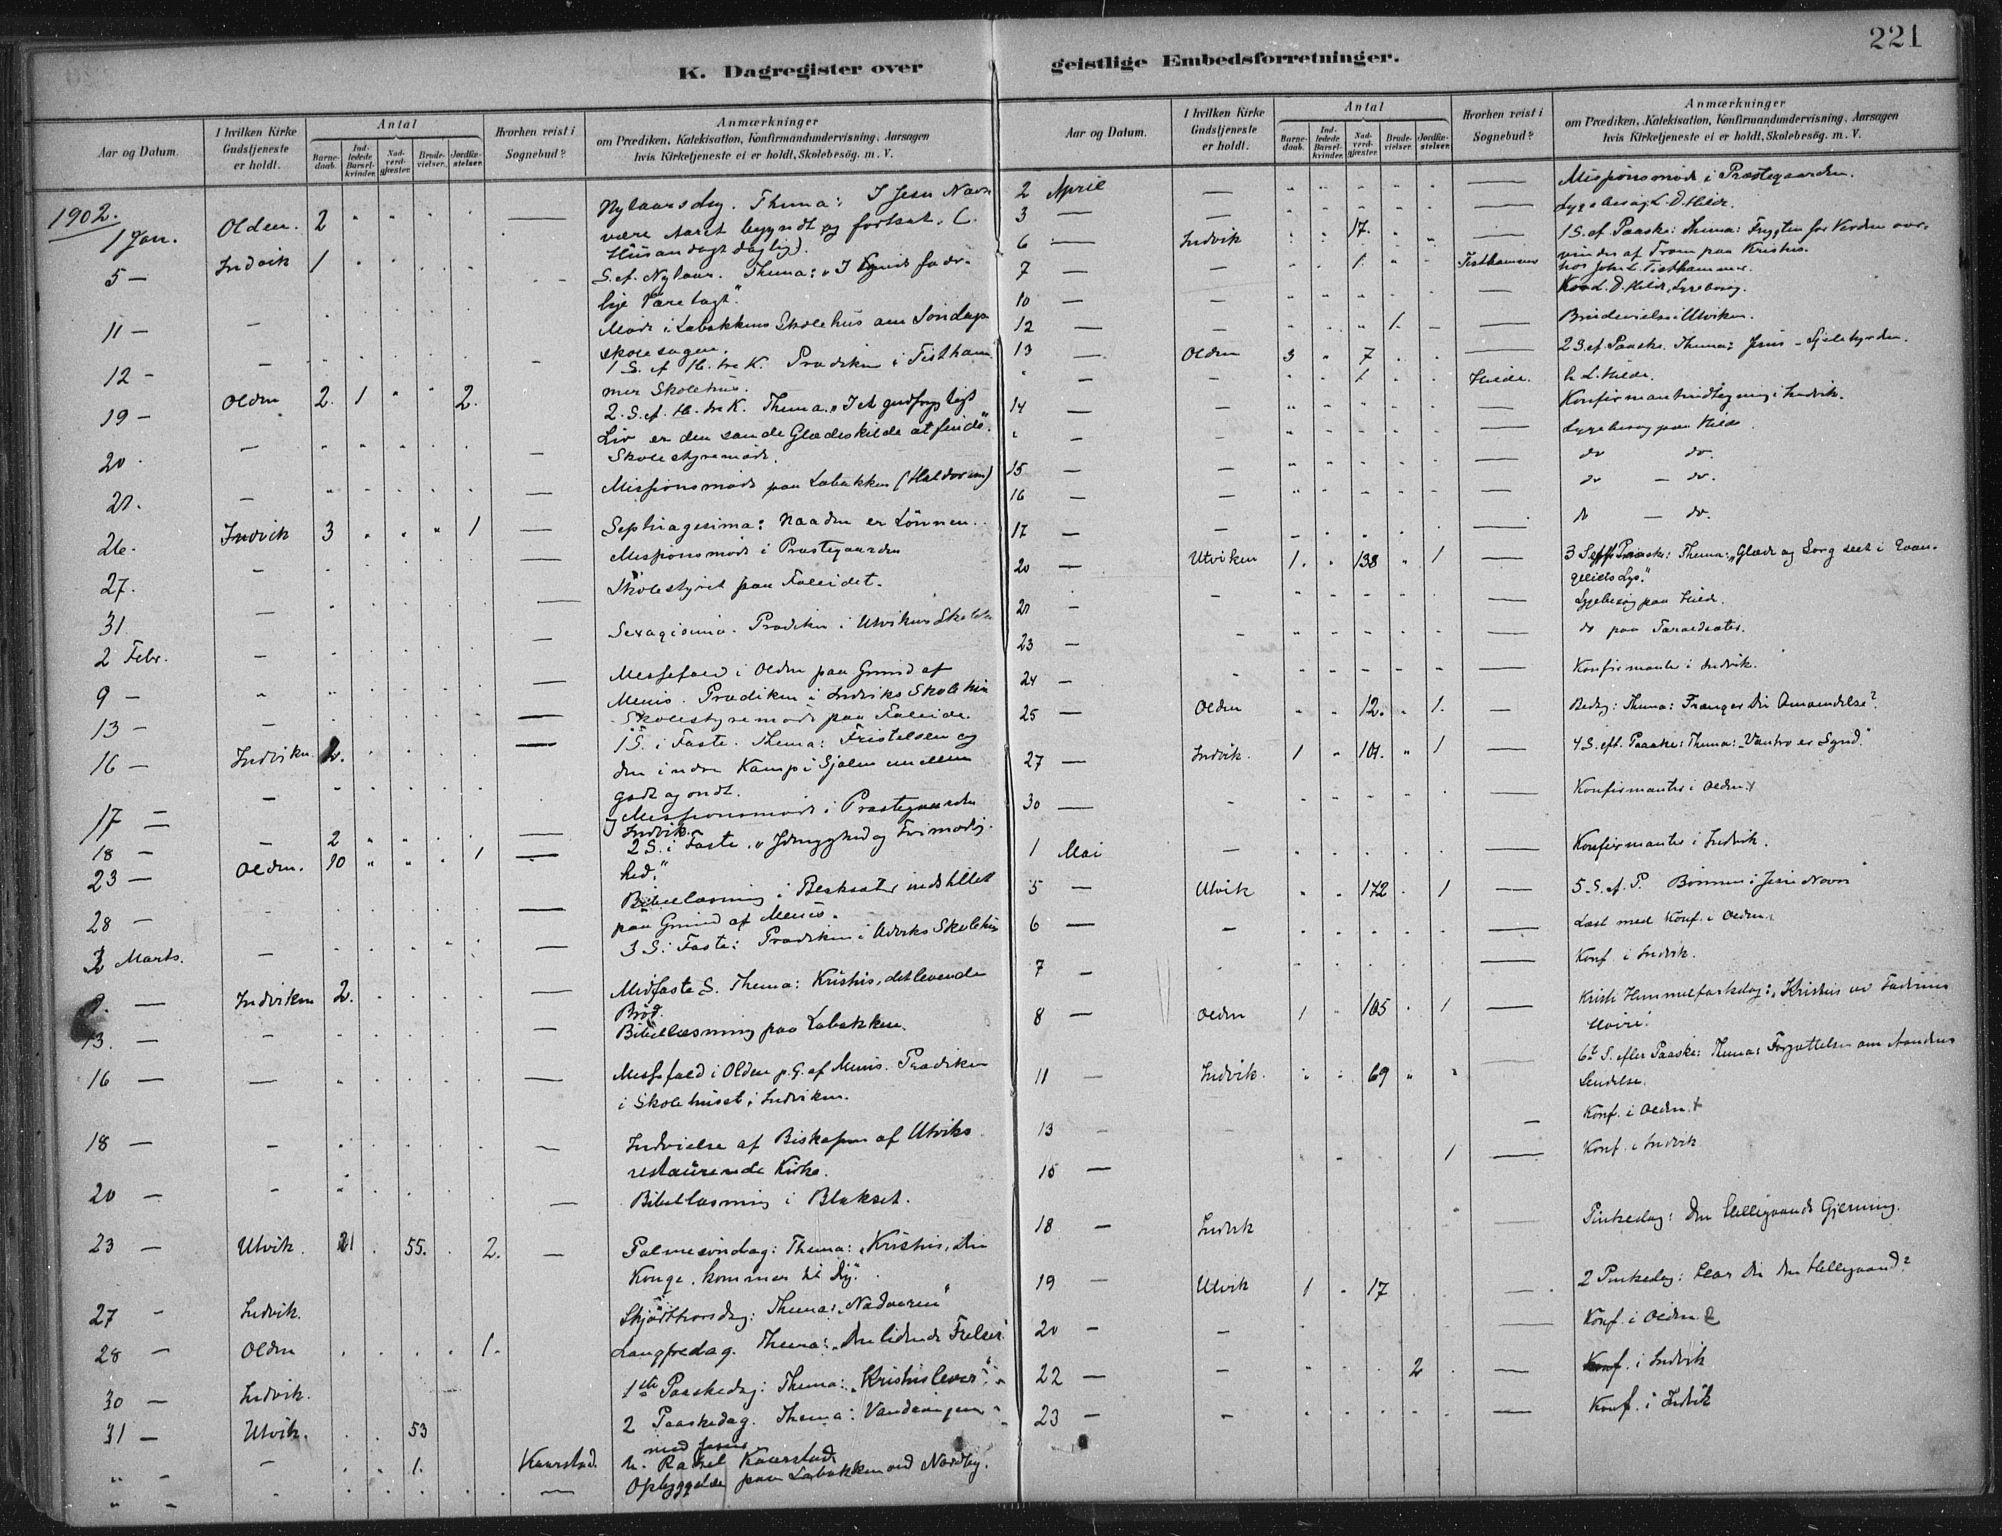 221
K. Dagregister over geistlige Embedsforretninger.
Aar og Datum.
I hvilken Kirke Gudstjeneste er holdt.
Antal
Barnedaab.
Indledede Barselkvinder.
Nadverdgjæster.
Brudevielser.
Jordfæstelser.
Hvorhen reist i Sognebud?
Anmærkninger
om Prædiken, Katekisation, Konfirmandundervisning, Aarsagen
hvis Kirketjeneste ei er holdt, Skolebesøg. m. V.
1902.
1 Jan. Olden. 2 Nytaarsdag. Thema: I Jesu Navn
være Aaret begyndt og fortsat.
Husandagt daglig).
5 — Indvik 1 S. ef. Nytaar. Thema: "I Guds faderlige Varetægt".
11 — Møde i Løbakkens Skolehus om Søndagsskolesagen.
12 — 1 S. ef H. tre K. Prædiken i Tisthammer Skolehus.
19 — Olden 2. 1 2. 2. S. ef. H. tre K. Thema. "I et gudfrygtigt
Liv er den sande Glædeskilde at finde".
20. Skolestyremøde.
Missionsmøde paa Løbakken
26. Indvik 3 1 Septuagesima: Naaden er Lønnen.
27. Missionsmøde i Præstegaarden
31 Skolestyret paa Faleidet.
2 Febr. Sexagesima. Prædiken i Utvikens Skole
9 — Messefald i Olden paa Grund af
Menis. Prædiken i Indviks Skolehus
13 — Skolestyremøde paa Faleide.
16 — Indviken. 2. 1 S. i Faste. Thema: Fristelsen og
den indre Kamp i Sjælen mellem
godt og ondt.
17 — Missionsmøde i Præstegaarden
Indvik.
18 — 2
23 — Olden. 10 1 2 S. i Faste. "Ydmyghed og Frimodighed."
28 — Bibellæsning i indstillet
paa Grund af Menis.
2 Marts. 3 S. i Faste: Prædiken i Utviks Skolehus
9. — Indviken 2. Midfaste S. Thema: Kristus, det levende
Brød.
13. — Bibellæsning paa Løbakken.
16 — Messefald i Olden p. G. af Menis. Prædiken
i Skolehuset i Indviken.
18 — Indvielse af Biskopen af Utviks
restaurerede Kirke.
20 — Bibellæsning i Blakset.
23 — Utvik. 21 55. 2. Palmesøndag: Thema: "Kristus, din
Konge, kommer til dig".
27 — Indvik. Skjærthorsdag: Thema: "Nadveren"
28 — Olden 1. Langfredag. Thema: "Den lidende Frelser"
30 — Indvik. 1ste Paaskedag: Thema: "Kristus lever".
31 — Utvik. 53 2 Paaskedag. Thema: Vandringen
med Jesus
" — 1. Kaarstad. h. Rakel Kaarstad
" — Opbyggelse paa Løbakken ved Nordby.
Aar og Datum.
I hvilken Kirke Gudstjeneste er holdt.
Antal
Barnedaab.
Indledede Barselkvinder.
Nadverdgjæster.
Brudevielser.
Jordfæstelser.
Hvorhen reist i Sognebud?
Anmærkninger
om Prædiken, Katekisation, Konfirmandundervisning, Aarsagen
hvis Kirketjeneste ei er holdt, Skolebesøg. m. V.
2 April — Missionsmøde i Præstegaarden.
3 — Sygebesøg L. D. Hilde.
6 — Indvik 17. 1 S. ef Paaske: Thema: Frygten for Verden overvindes af Troen paa Kristus.
7 — 1 Tisthammer hos John L. Tisthammer.
10 — L. D. Hilde, Sygebesøg.
12 — 1. Brudevielse i Utviken.
13 — Olden 3 7 2 S. ef Paaske. Thema: Jesus — Sjælehyrden.
" — 1 Hilde. h L. Hilde.
14 — Konfirmantindtegning i Indvik.
" — Sygebesøg paa Hilde
15 — do do.
16 — do — do.
17 — do — do.
20 — Utviken 1. 138 1 3 S. eft. Paaske: Thema: "Glæde og Sorg seet i Evangeliets Lys."
21 — Sygebesøg paa Hilde.
23 — do paa
24 — Konfirmanter i Indvik.
25 — Olden 12. 1. Bededag: Thema: Trænger Du Omvendelse?
27 — Indvik. 1 101. 1 4 S. eft. Paaske: Thema: "Vantro er Synd."
30 — Konfirmanter i Olden.
1 Mai — Konfirmanter i Indvik.
5 — Utvik 172 1 5 S. ef. P. Bønnen i Jesu Navn
6 — Læst med Konf. i Olden.
7 — Konf. i Indvik.
8 — Olden 1 105 1 Kristi Himmelfartsdag: "Kristus ved Faderens
Høire".
11 — Indvik. 69 6te S. efter Paaske: Thema: Forjættelsen om Aandens
Sendelse.
13 — Konf. i Olden.
15 — 1 Konf. i Indvik
18 — Indvik Pinsedag: Den Helligaands Gjerning.
19 — Utvik 1 17 2 Pinsedag: Har Du den Helligaand?
20 — Konf. i Olden
22 — 2 Konf. i Indvik
23 — Konf. i Indvik